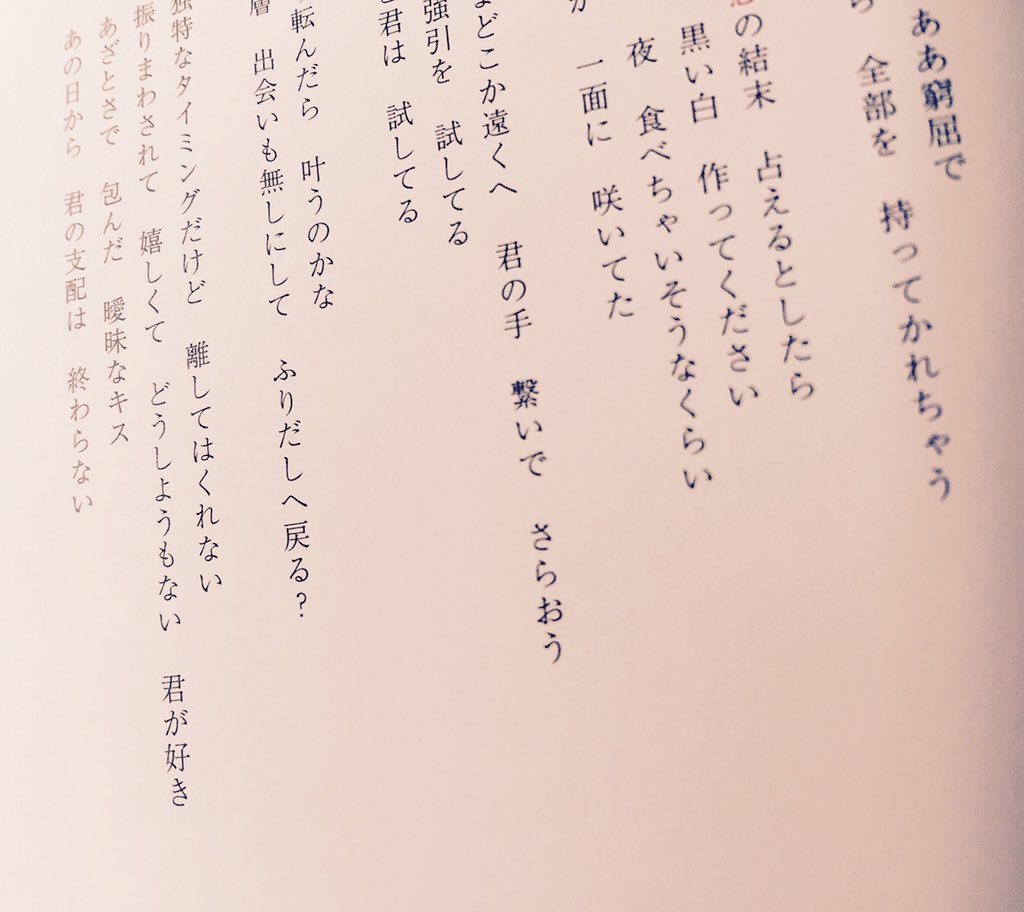 ああ窮屈で
全部を 持ってかれちゃう
の結末 占えるとしたら
黒い白 作ってください
夜 食べちゃいそうなくらい
一面に 咲いてた
どこか遠くへ 君の手 繋いで さらおう
強引を 試してる
君は 試してる
転んだら 叶うのかな
出会いも無しにして ふりだしへ戻る?
独特なタイミングだけど 離してはくれない
振りまわされて 嬉しくて どうしようもない 君が好き
あざとさで 包んだ 曖昧なキス
あの日から 君の支配は 終わらない